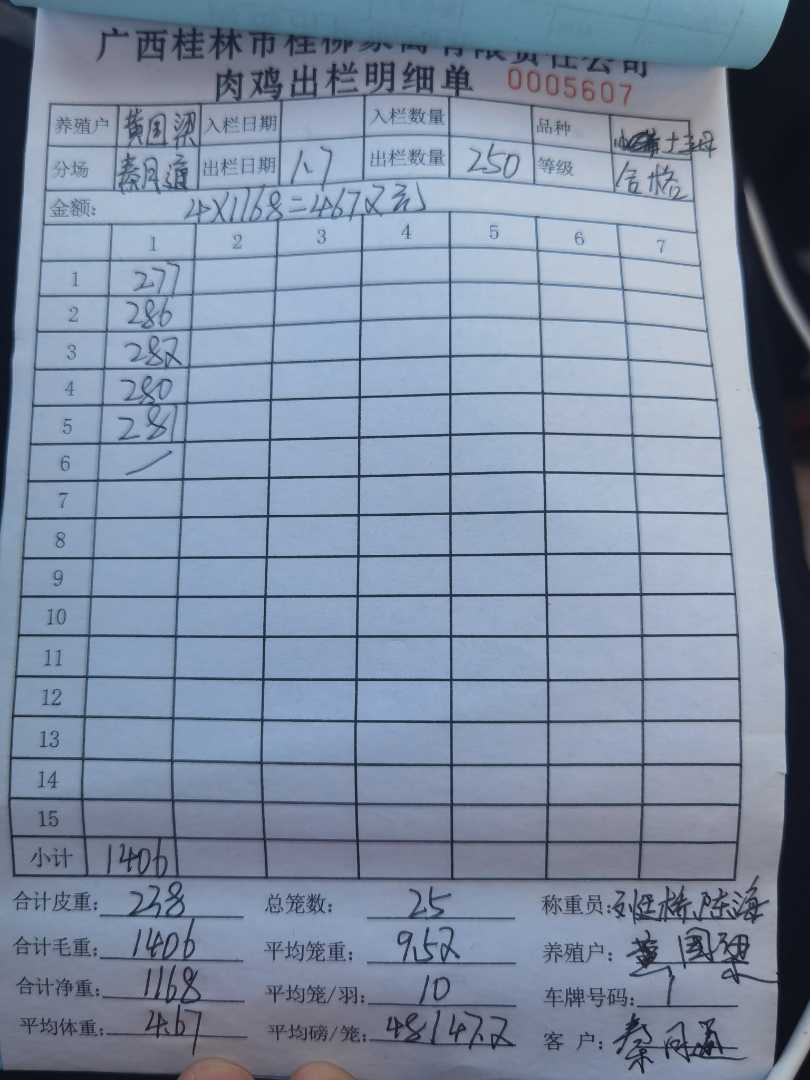 广西桂林市桂柳家禽有限责任公司
肉鸡出栏明细单 0005607
养殖户 黄国梁 入栏日期 入栏数量 品种 土母
分场 秦月通 出栏日期 1.7 出栏数量 250 等级 合格
金额: 4×1168=4672元
1 2 3 4 5 6 7
1 277
2 286
3 282
4 280
5 281
6
7
8
9
10
11
12
13
14
15
小计 1406
合计皮重: 238 总笼数: 25 称重员: 陈海
合计毛重: 1406 平均笼重: 9.52 养殖户: 黄国梁
合计净重: 1168 平均笼/羽: 10 车牌号码:
平均体重: 4.67 平均磅/笼: 48/47.2 客户: 秦月通